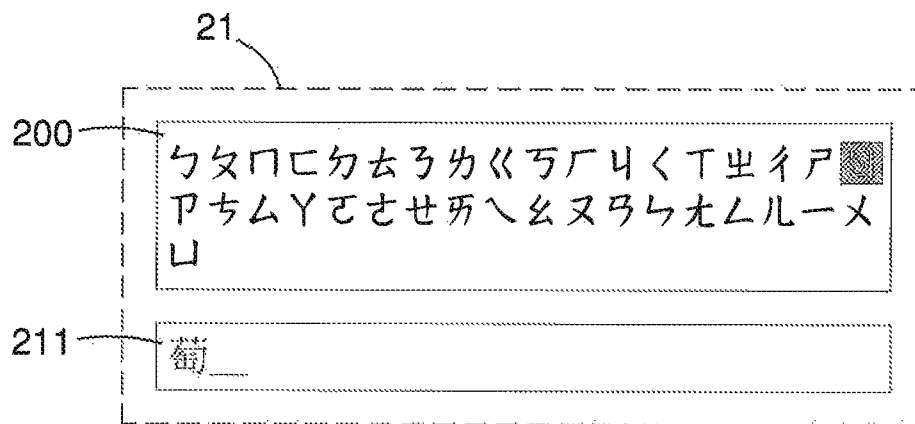 21
200
ㄅㄆㄇㄈㄉㄊㄋㄌㄍㄎㄏㄐㄑㄒㄓㄔㄕㄖ
ㄗㄘㄙㄚㄛㄜㄝㄞㄟㄠㄡㄢㄣㄤㄥㄦㄧㄨ
ㄩ
211
萄__